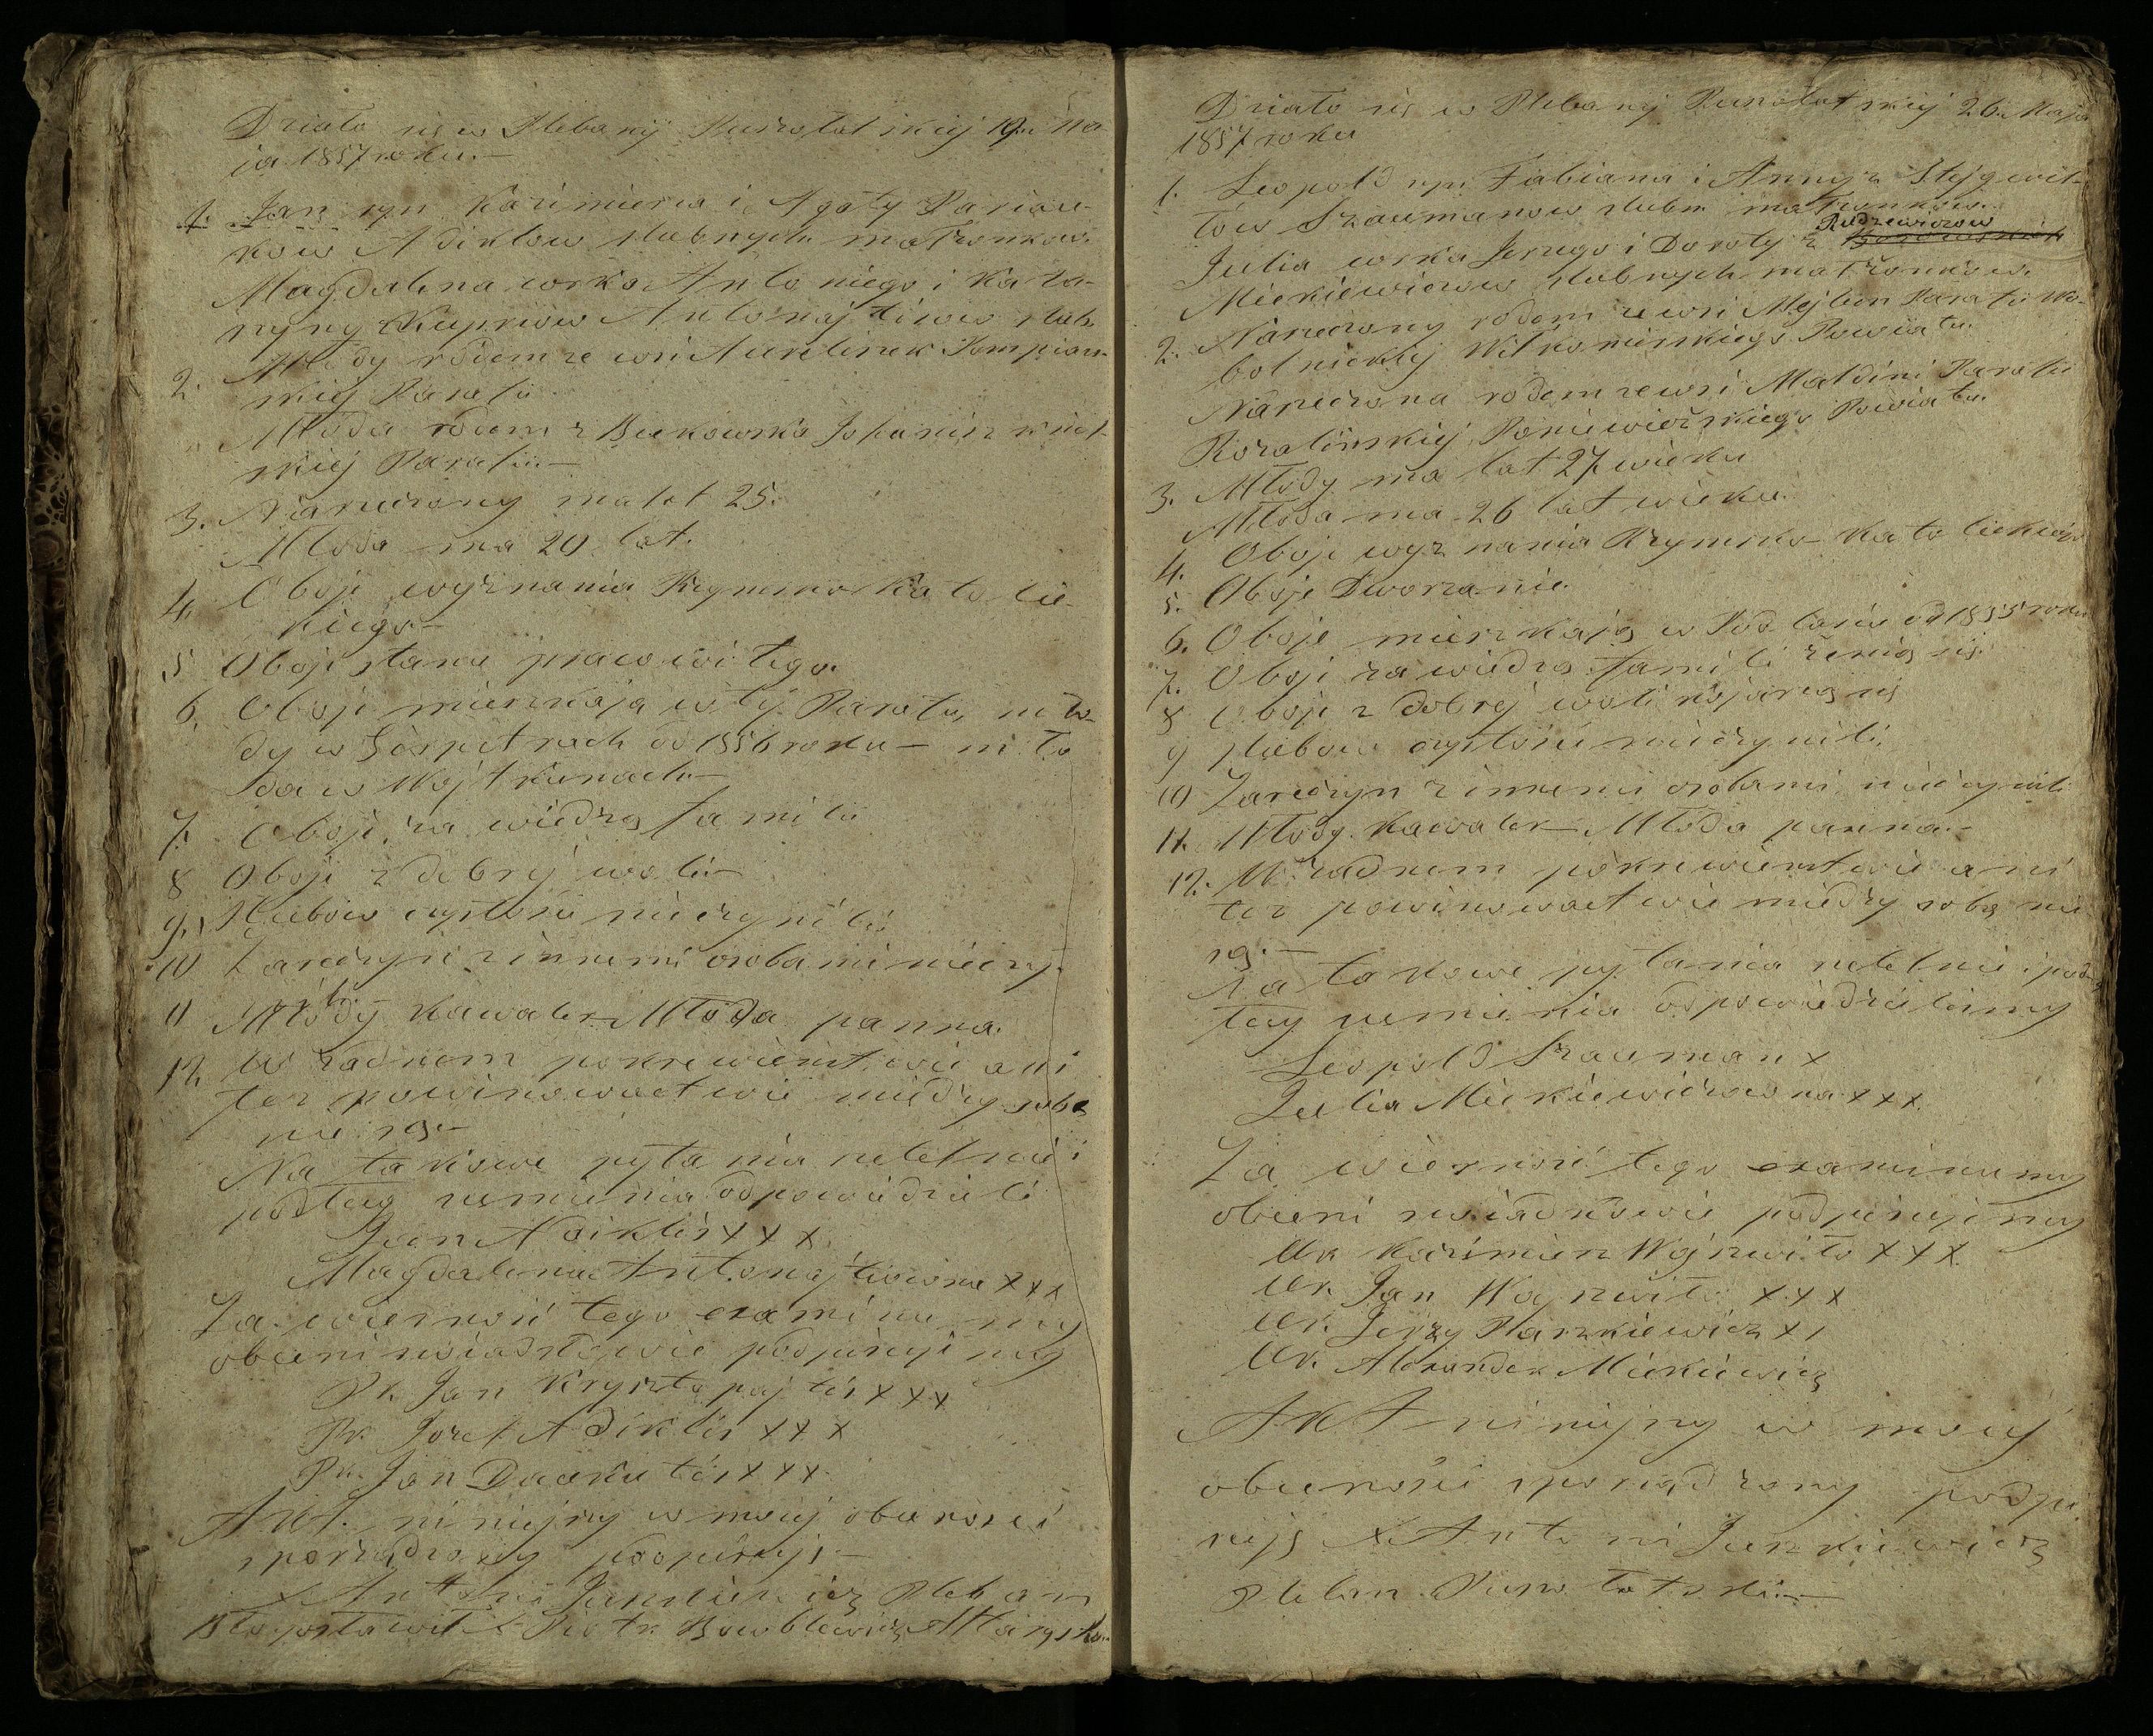 Działo się w Plebanij Puszołatskiej 19. Ma-
ja 1857 roku.—
1. Jan syn Kazimierza i Agaty
kow Adiklow slubnych matżonkow.
Magdalena corka Antoniego i Kata-
ryny Kupriow Antonajtisow slub.
2. Młody rodem ze wsi Aurelinek Pompian-
skiej Parafii
Młoda rodem z Bukowska
skiej Parafii.—
3. Narzeczony ma lat 25.
Młoda ma 20 lat.
4. Oboje wyznania Rzymsko Katolic-
kiego—
5 Oboje stanu prawowitego.
6. Oboje mieszkają w tej Parafii, mło-
dy w od 1856 roku— mło
da w Wojtkunach—
7. Oboje za wiedzą familii
8 Oboje z dobrej woli—
9. Slubow czystości nie czynili
10 Zaręczyn z innemi osobami nie czy-
nili.—
11 Młody kawaler Młoda panna.
12. W żadnem pokrewieństwie ani
tez powinowactwie między sobą
nie są.—
Na takowe pytania rzetelnie i
podług sumienia odpowiedzieli
Jan Adiklis x x x
Magdalena Antonajtisowna x x x
Za wierność tego examinu my
obecni swiadkowie podpisujemy
Pr. Jan Krysztapajtis x x x
Pr. Jozef Adiklis x x x
Pr. Jan Daukutis x x x
Akt niniejszy w mojej obecności
sporządzony podpisuję—
X Antoni Junkiewicz Pleban
Błogosławił X Piotr Altarysta.
Działo się w Plebanij Puszołatskiej 26. Maja
1857 roku
1. Leopold syn Fabiana i Anny z Stejgwil-
tow Szaumanow slubn matżonkow.
Julia corka Jerzego i Doroty z Rudzewiczow
Mickiewiczow slubnych matżonkow.
2. Narzeczony rodem ze wsi Mejlun Parafii Wo-
bolnickiej Wiłkomirskiego Powiatu.
Narzeczona rodem ze wsi Maldini Parafii
Rozalinskiej Poniewiezskiego Powiatu.
3. Młody ma lat 27 wieku
Młoda ma 26 lat wieku.
4. Oboje wyznania Rzymsko Katolickiego
5. Oboje Dworzanie.
6. Oboje mieszkają w od 1855 roku
7. Oboje za wiedzą familii żenią się.
8 Oboje z dobrej woli kojarzą się
9 Slubow czystości nie czynili.
10 Zaręczyn z innemi osobami nie czynili
11. Młody kawaler Młoda panna.—
12. W żadnem pokrewieństwie ani
tez powinowactwie między sobą nie
są.—
Na takowe pytania rzetelnie i pod-
ług sumienia odpowiedzielismy
Leopold Szauman x
Julia Mickiewiczowna x x x.
Za wierność tego examinu my
obecni swiadkowie podpisujemy
Ur. Kazimierz Wojzwiłło x x x.
Ur. Jan Wojzwiłło x x x
Ur. Jerzy x x
Ur. Alexander Mickiewicz
Akt niniejszy w mojej
obecności sporządzony podpi-
suję X Antoni Junkiewicz
Pleban Puszołatski.—